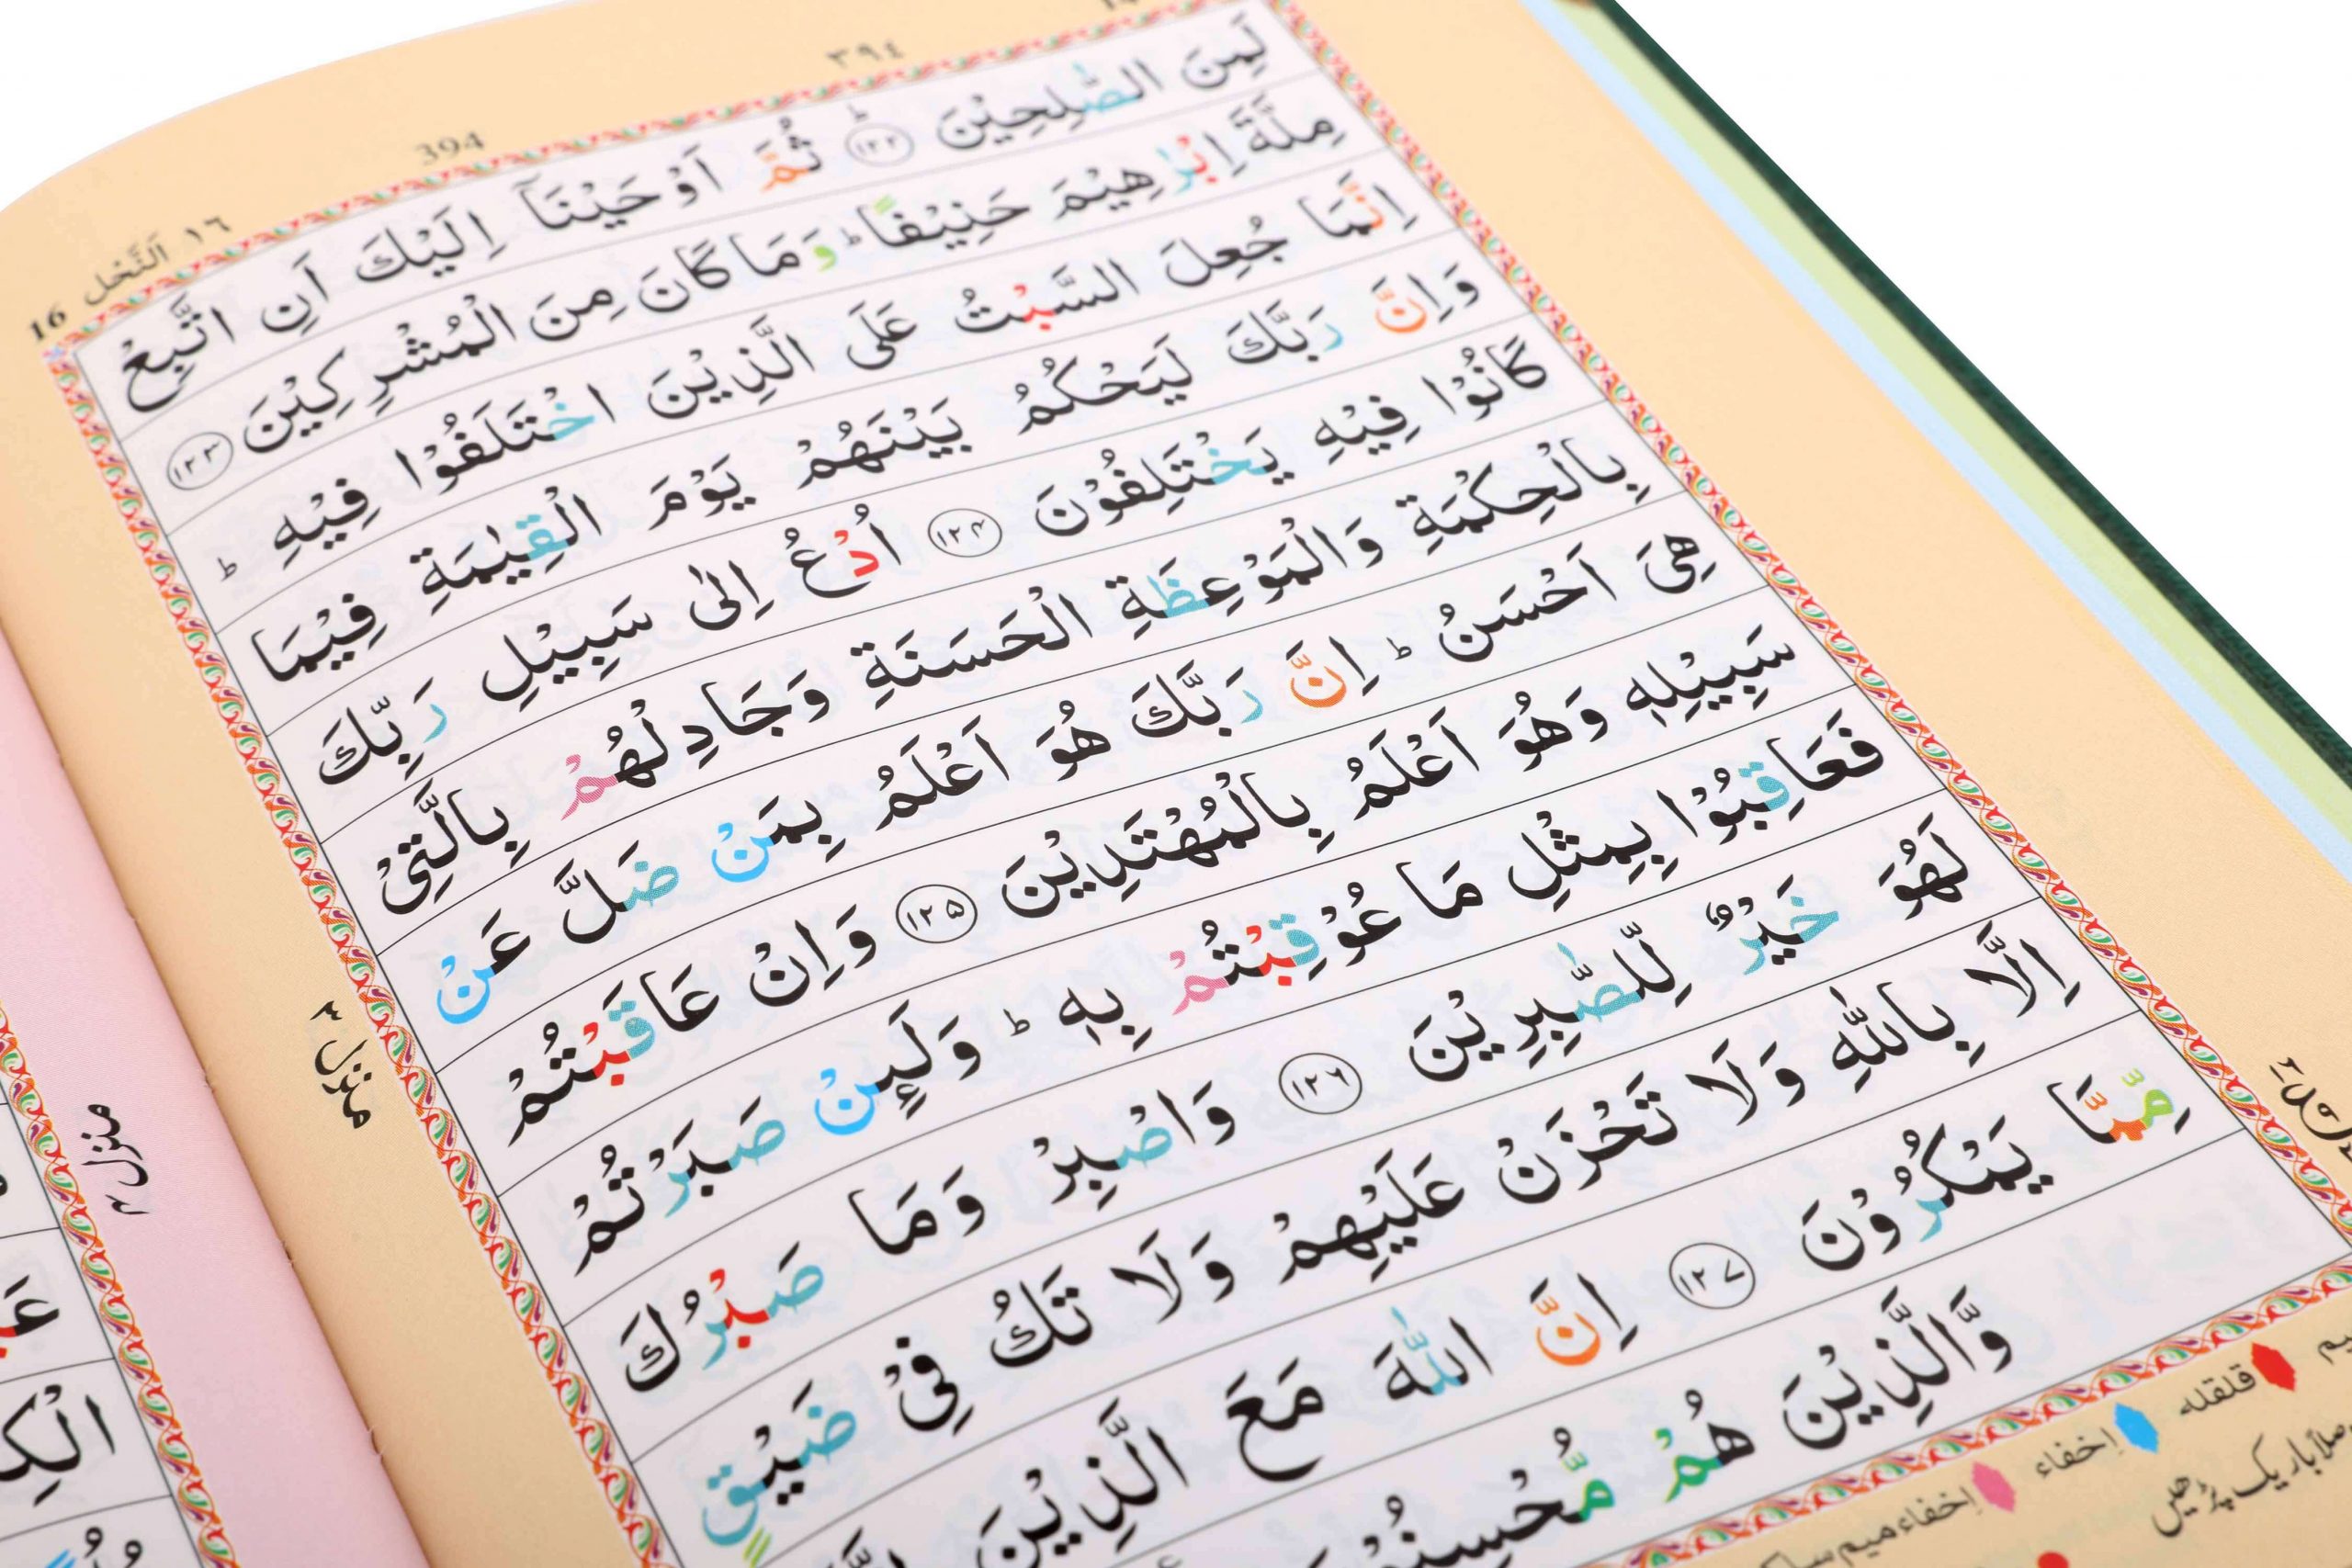 ٣٩٤
394
١٦ اَلنَّحْل 16
لَمِنَ الصّٰلِحِيْنَ ؕ ﴿۱۲۲﴾ ثُمَّ اَوْحَيْنَاۤ اِلَيْكَ اَنِ اتَّبِعْ
مِلَّةَ اِبْرٰهِيْمَ حَنِيْفًا ؕ وَمَا كَانَ مِنَ الْمُشْرِكِيْنَ ﴿۱۲۳﴾
اِنَّمَا جُعِلَ السَّبْتُ عَلَى الَّذِيْنَ اخْتَلَفُوْا فِيْهِ ؕ
وَاِنَّ رَبَّكَ لَيَحْكُمُ بَيْنَهُمْ يَوْمَ الْقِيٰمَةِ فِيْمَا
كَانُوْا فِيْهِ يَخْتَلِفُوْنَ ﴿۱۲۴﴾ اُدْعُ اِلٰى سَبِيْلِ رَبِّكَ
بِالْحِكْمَةِ وَالْمَوْعِظَةِ الْحَسَنَةِ وَجَادِلْهُمْ بِالَّتِيْ
هِيَ اَحْسَنُ ؕ اِنَّ رَبَّكَ هُوَ اَعْلَمُ بِمَنْ ضَلَّ عَنْ
سَبِيْلِهٖ وَهُوَ اَعْلَمُ بِالْمُهْتَدِيْنَ ﴿۱۲۵﴾ وَاِنْ عَاقَبْتُمْ
فَعَاقِبُوْا بِمِثْلِ مَا عُوْقِبْتُمْ بِهٖ ؕ وَلَئِنْ صَبَرْتُمْ
لَهُوَ خَيْرٌ لِّلصّٰبِرِيْنَ ﴿۱۲۶﴾ وَاصْبِرْ وَمَا صَبْرُكَ
اِلَّا بِاللّٰهِ وَلَا تَحْزَنْ عَلَيْهِمْ وَلَا تَكُ فِيْ ضَيْقٍ
مِّمَّا يَمْكُرُوْنَ ﴿۱۲۷﴾ اِنَّ اللّٰهَ مَعَ الَّذِيْنَ
وَّالَّذِيْنَ هُمْ مُّحْسِنُوْنَ
منزل ٣
منزل ٣
قلقله
إخفاء
إخفاء ميم ساكن
باريک پڑھيں